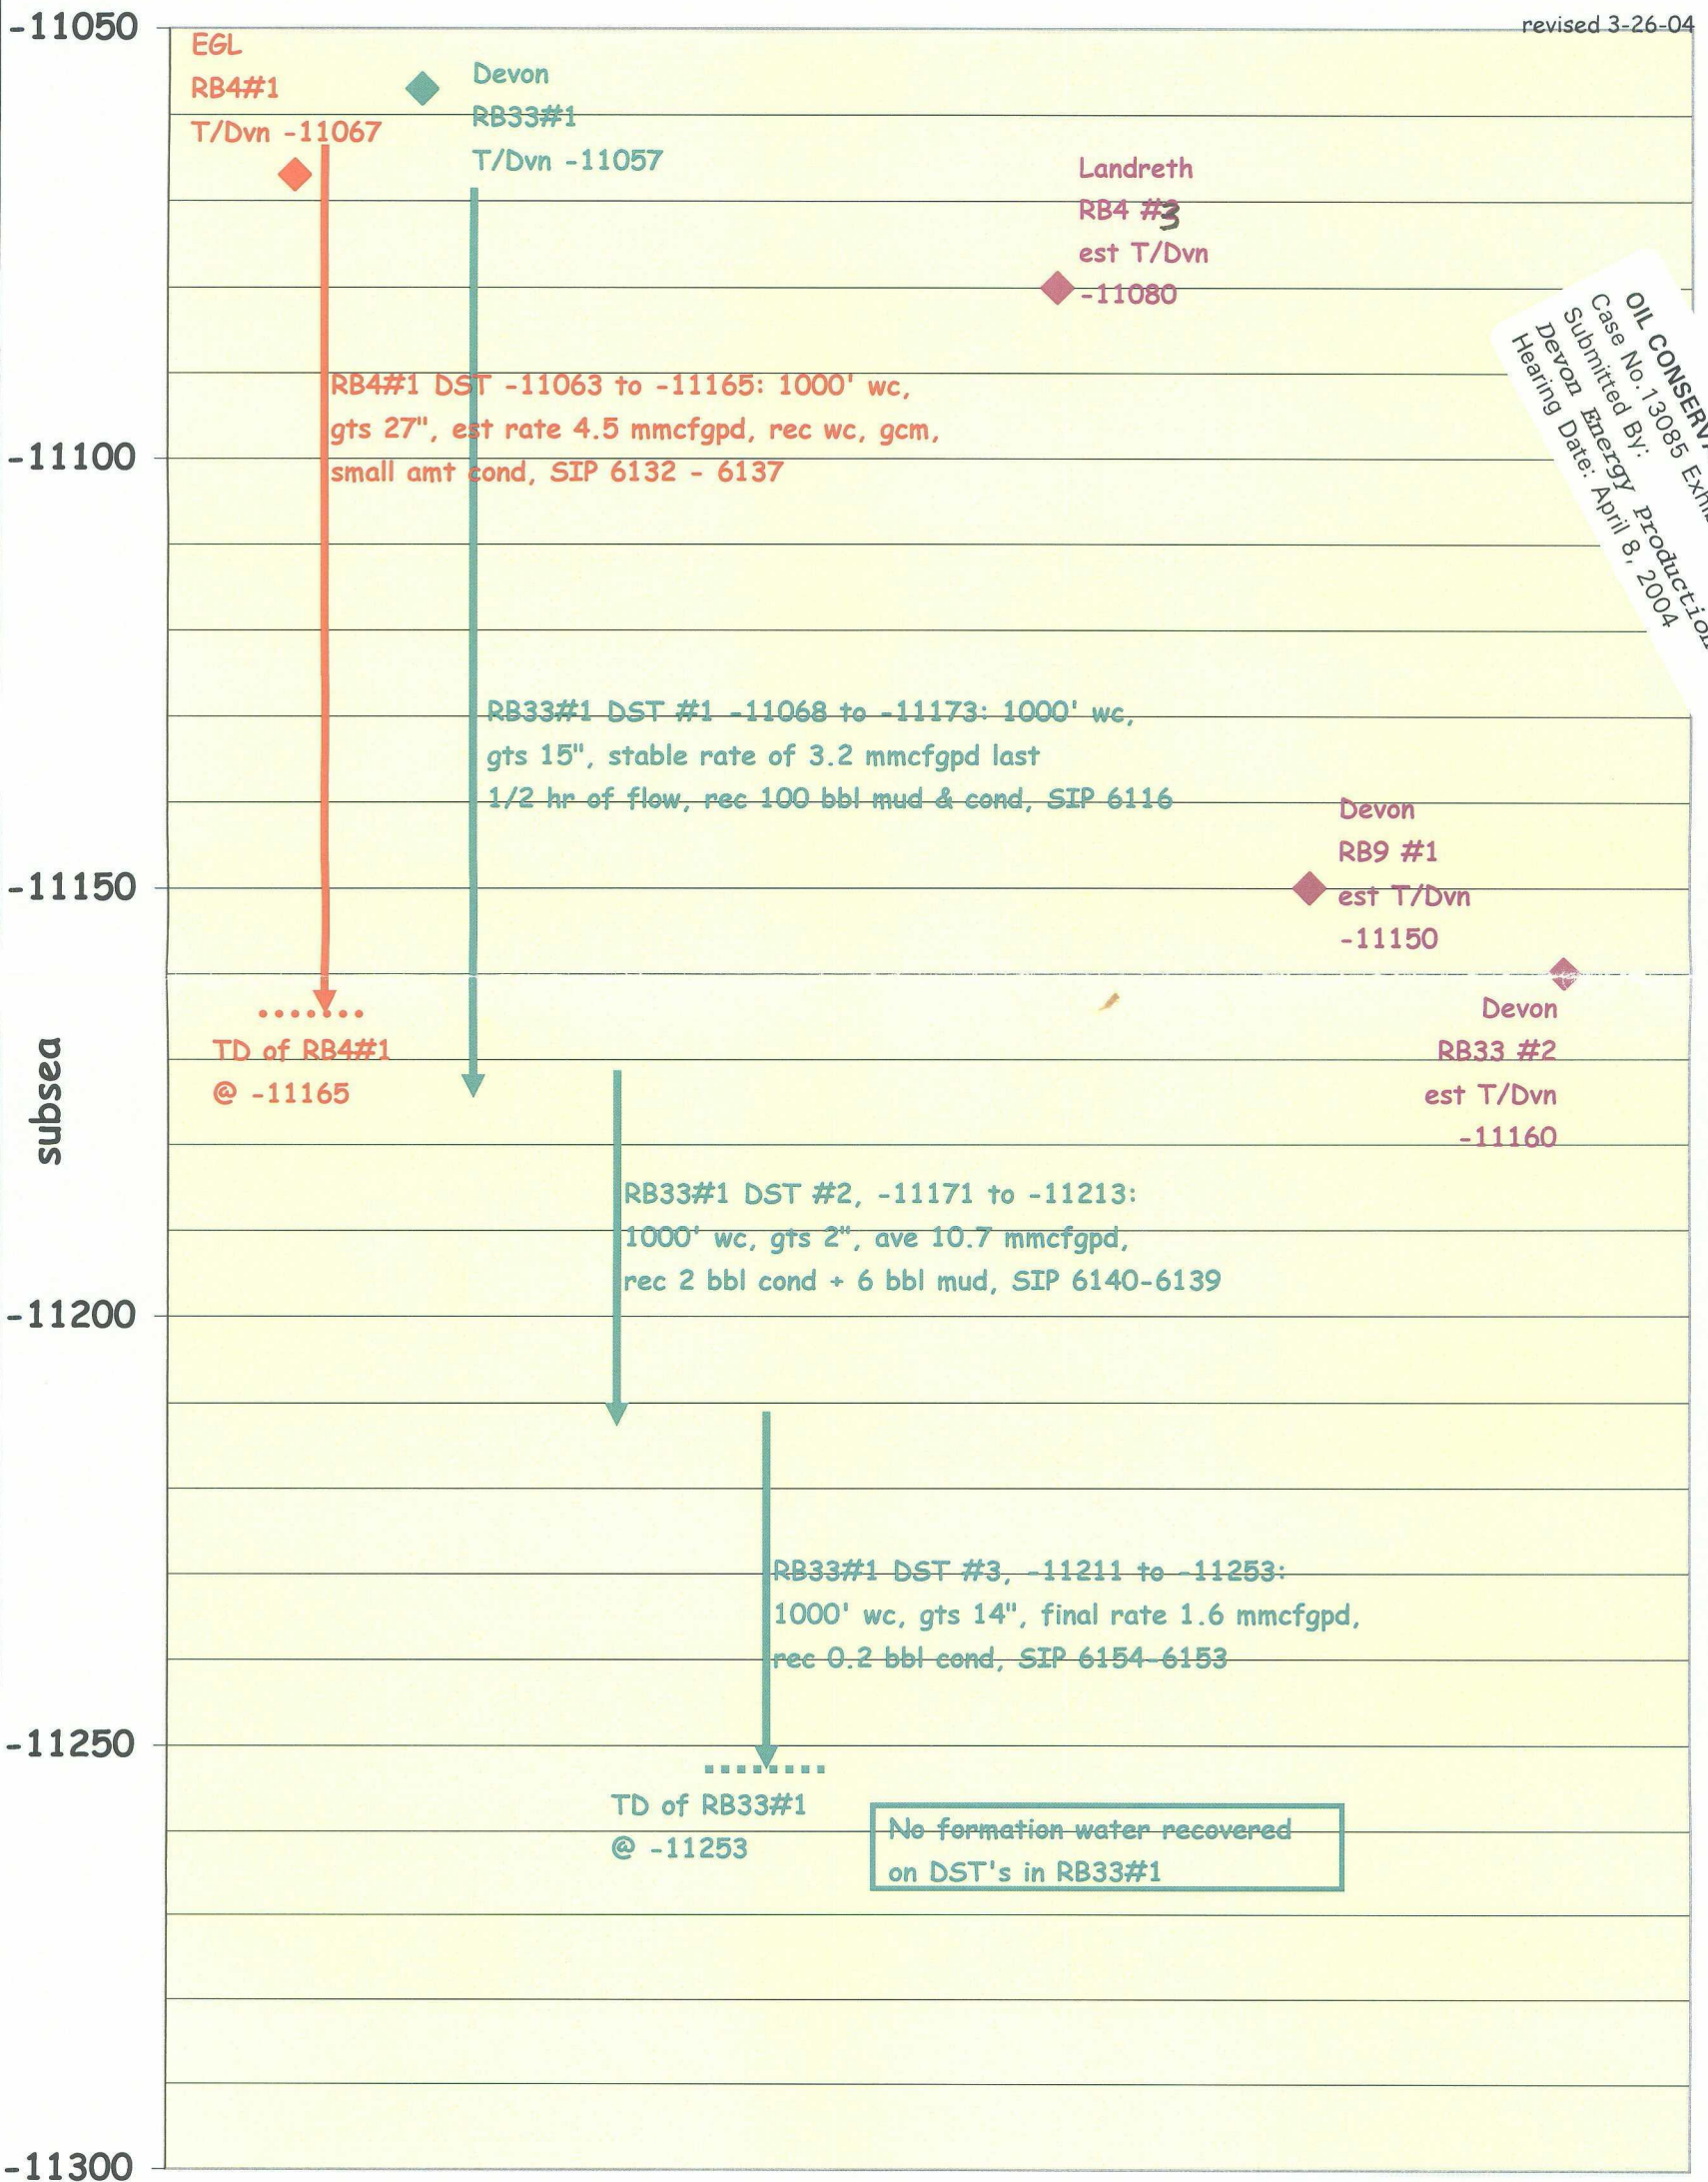 revised 3-26-04
-11050
EGL
RB4#1
T/Dvn -11067
Devon
RB33#1
T/Dvn -11057
Landreth
RB4 #3
est T/Dvn
-11080
OIL CONSERV
Case No.13085 Exh
Submitted By:
Devon Energy Production
Hearing Date: April 8, 2004
RB4#1 DST -11063 to -11165: 1000' wc,
gts 27", est rate 4.5 mmcfgpd, rec wc, gcm,
small amt cond, SIP 6132 - 6137
-11100
RB33#1 DST #1 -11068 to -11173: 1000' wc,
gts 15", stable rate of 3.2 mmcfgpd last
1/2 hr of flow, rec 100 bbl mud & cond, SIP 6116
Devon
RB9 #1
est T/Dvn
-11150
-11150
Devon
RB33 #2
est T/Dvn
-11160
TD of RB4#1
@ -11165
subsea
RB33#1 DST #2, -11171 to -11213:
1000' wc, gts 2", ave 10.7 mmcfgpd,
rec 2 bbl cond + 6 bbl mud, SIP 6140-6139
-11200
RB33#1 DST #3, -11211 to -11253:
1000' wc, gts 14", final rate 1.6 mmcfgpd,
rec 0.2 bbl cond, SIP 6154-6153
-11250
TD of RB33#1
@ -11253
No formation water recovered
on DST's in RB33#1
-11300